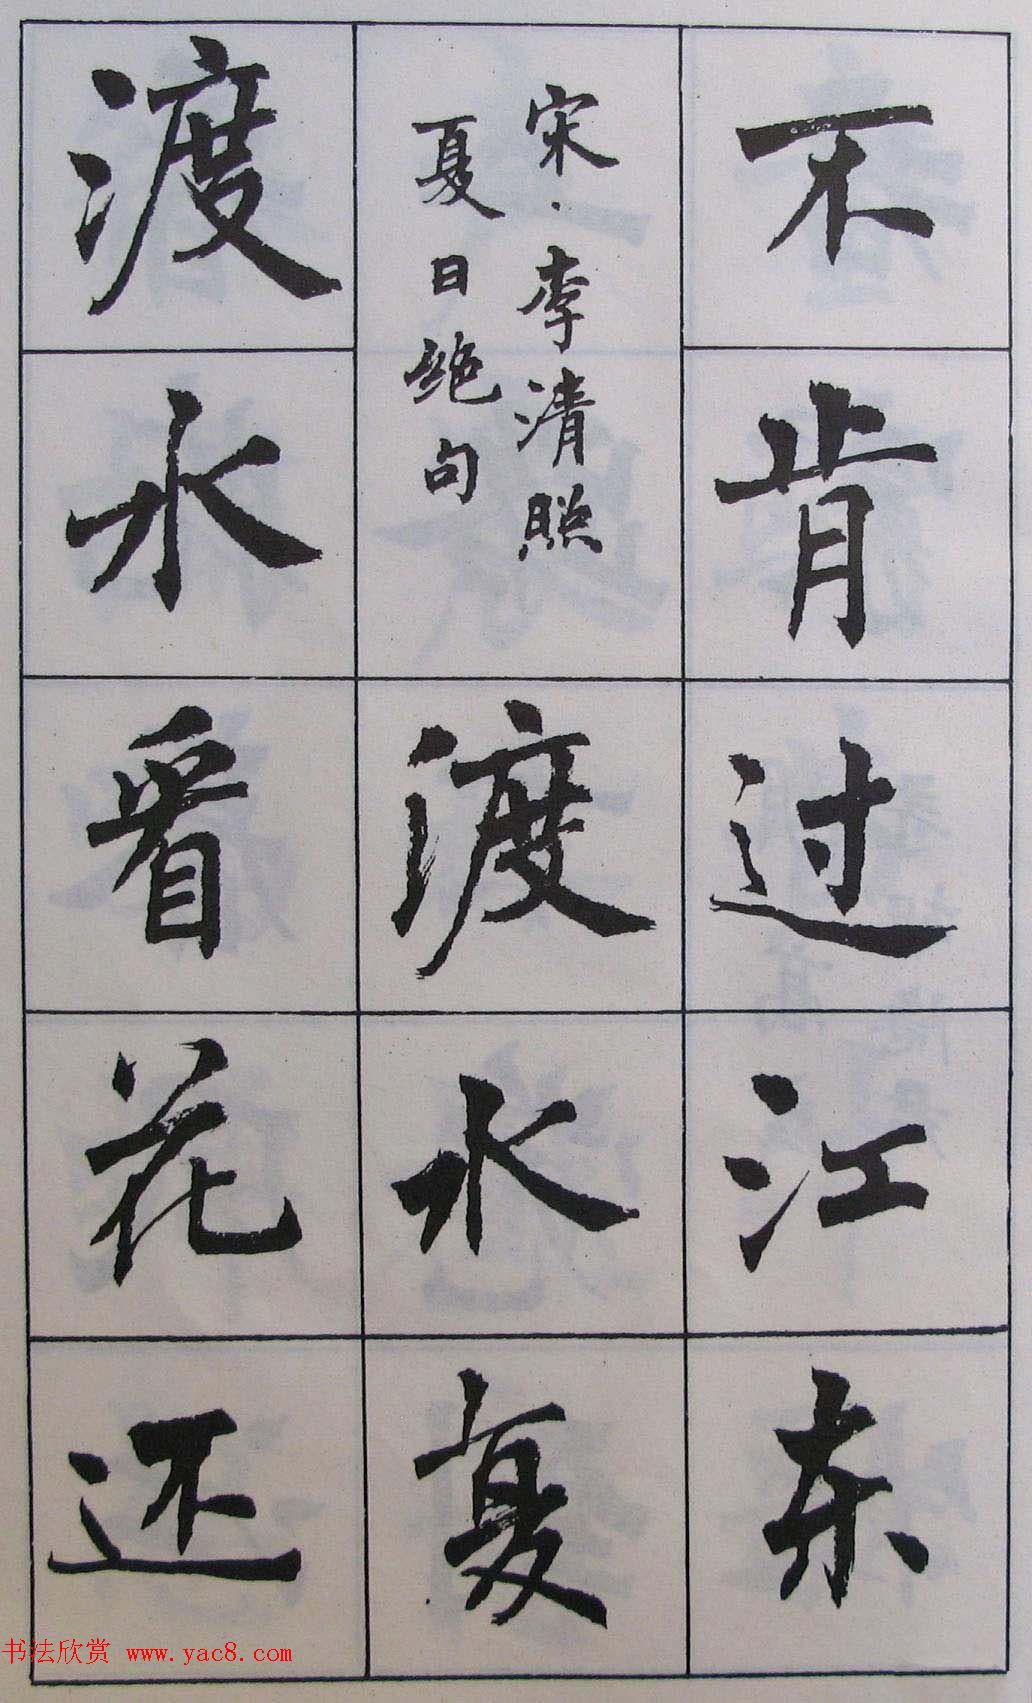 不肯过江东
宋·李清照
夏日绝句
渡水复
渡水看花还
书法欣赏 www.yac8.com